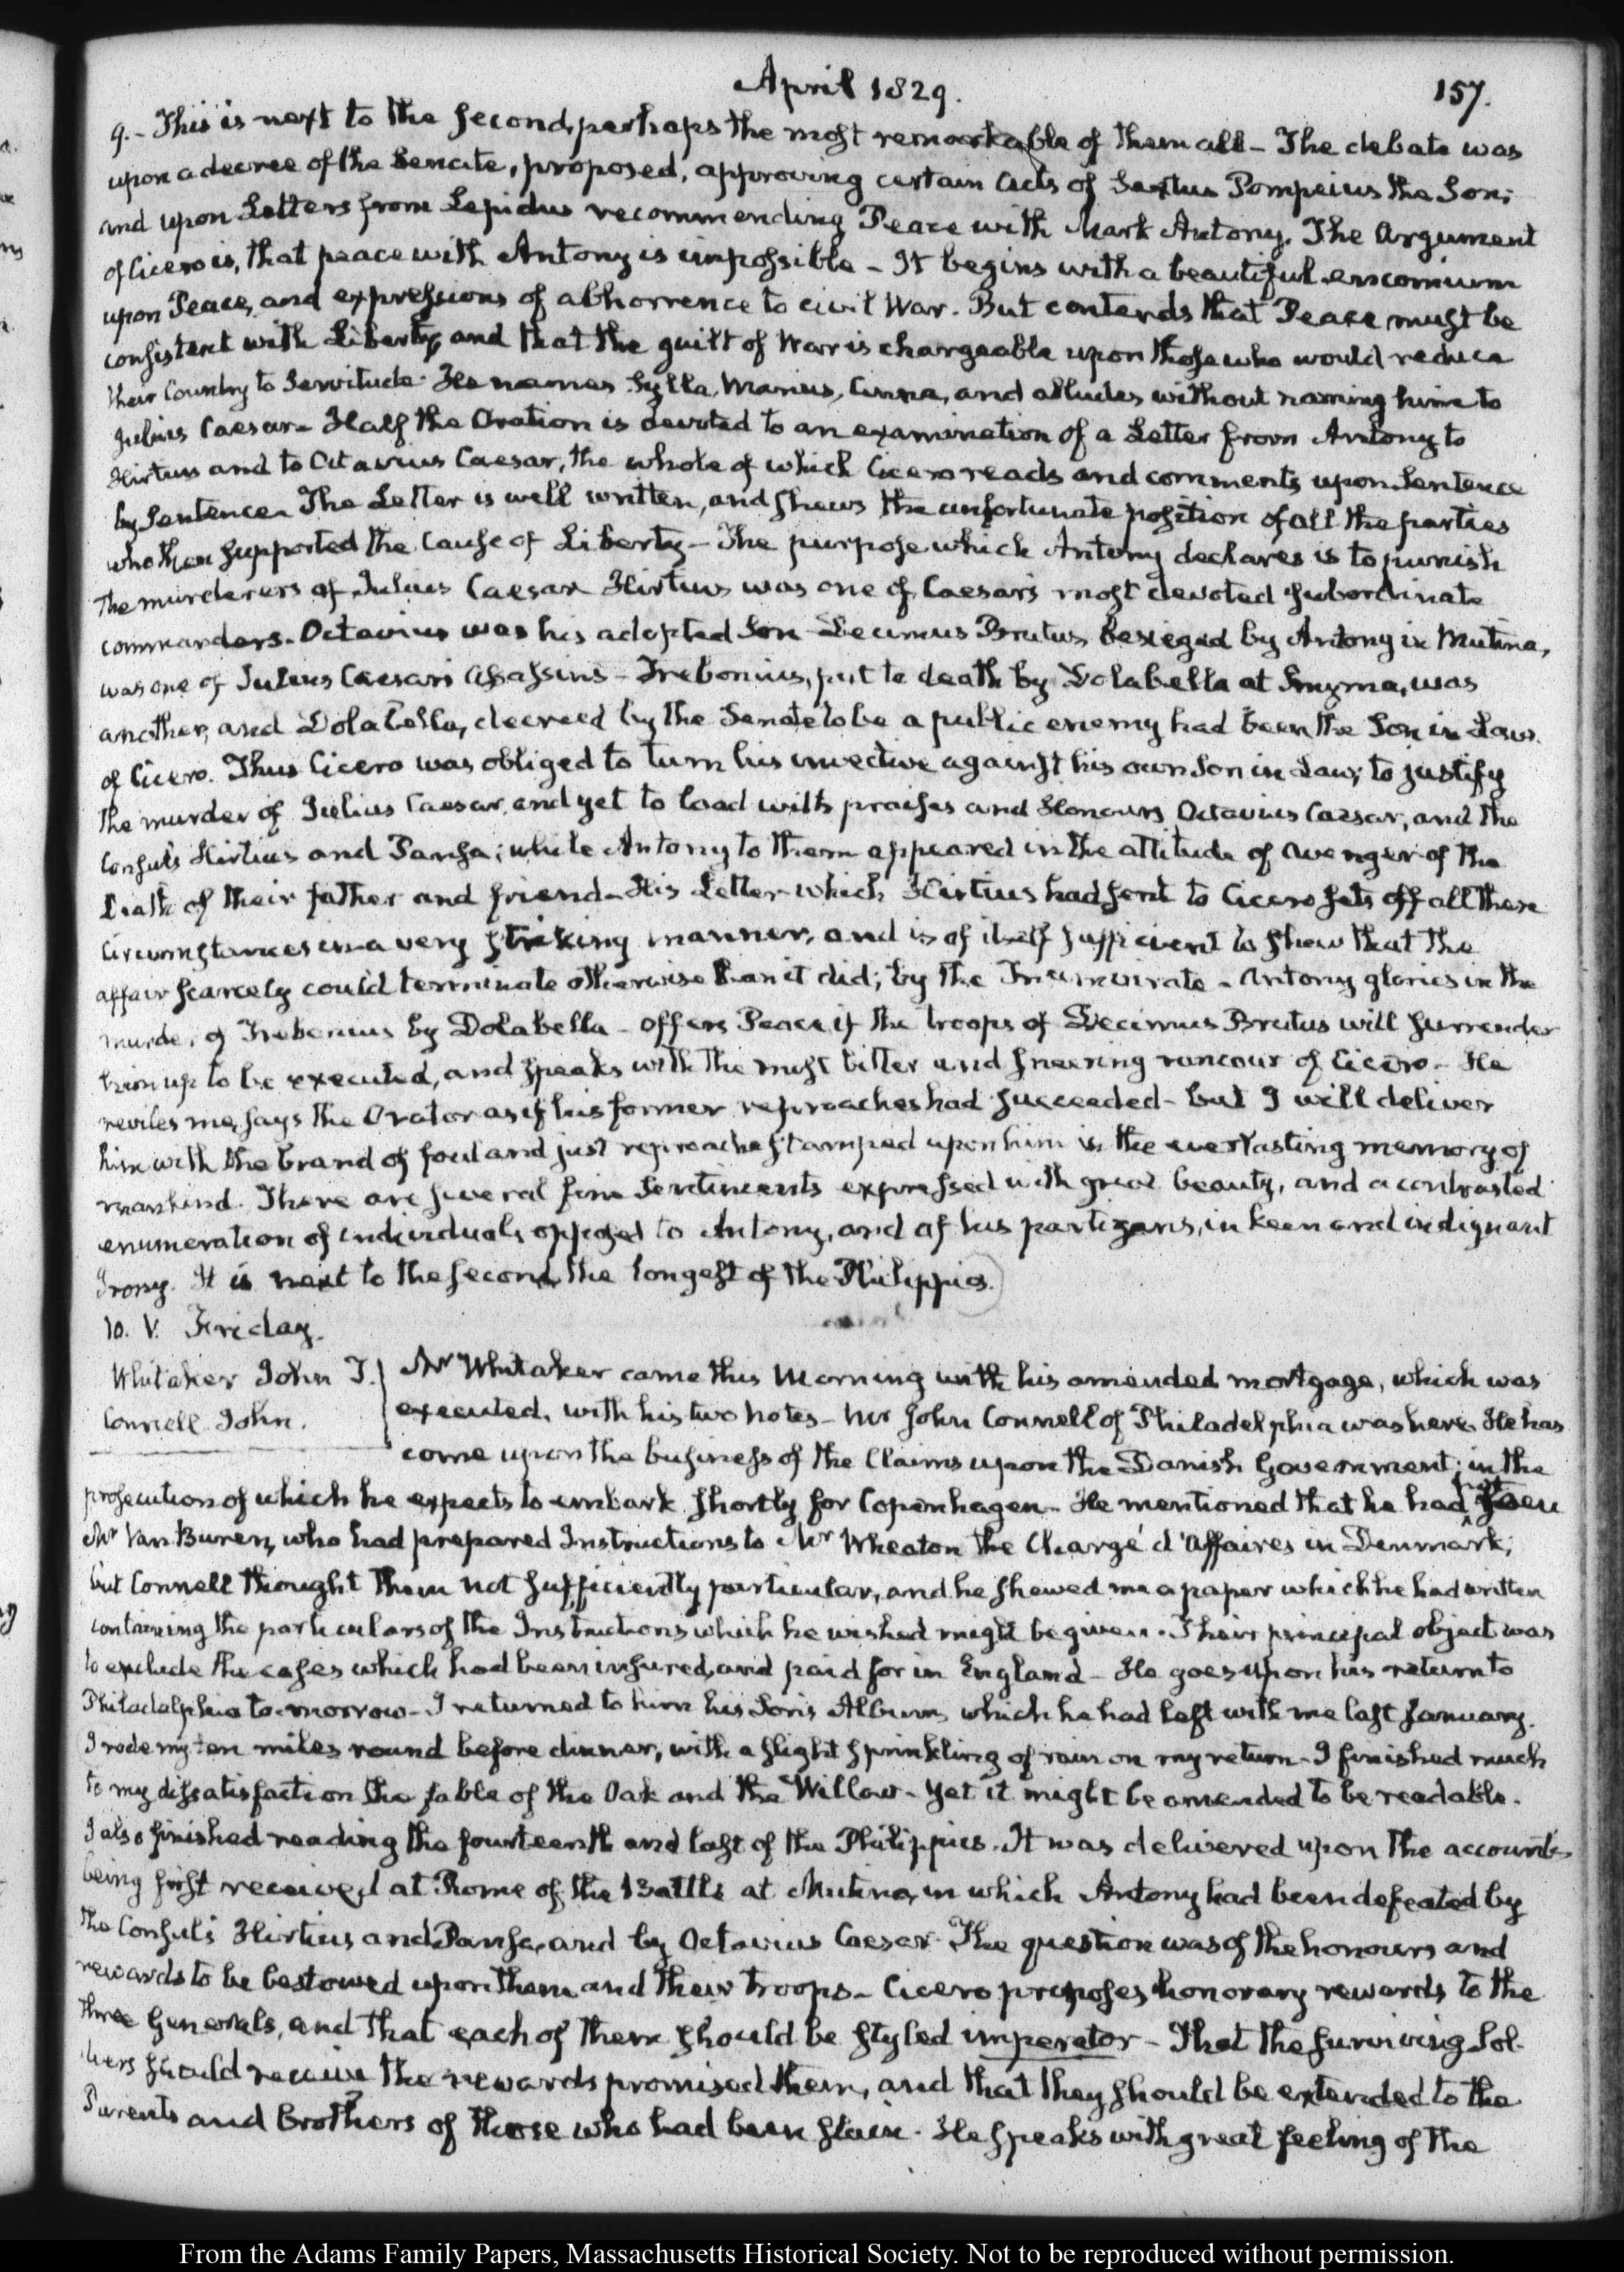 April 1829.
157.
9.- This is next to the second, perhaps the most remarkable of them all - The debate was
upon a decree of the Senate, proposed, approving certain acts of Sextus Pompeius the Son;
and upon Letters from Lepidus recommending Peace with Mark Antony. The Argument
of Cicero is, that peace with Antony is impossible - It begins with a beautiful encomium
upon Peace, and expressions of abhorrence to civil War. But contends that Peace must be
consistent with Liberty, and that the guilt of War is chargeable upon those who would reduce
their Country to Servitude. He names Sylla, Marius, Cinna, and alludes without naming him to
Julius Caesar - Half the Oration is devoted to an examination of a Letter from Antony to
Hirtius and to Octavius Caesar, the whole of which Cicero reads and comments upon Sentence
by Sentence. The Letter is well written, and shews the unfortunate position of all the parties
who then supported the Cause of Liberty - The purpose which Antony declares is to punish
the murderers of Julius Caesar. Hirtius was one of Caesar's most devoted subordinate
commanders. Octavius was his adopted Son - Decimus Brutus besieged by Antony in Mutina,
was one of Julius Caesar's assassins - Trebonius, put to death by Dolabella at Smyrna, was
another, and Dolabella, decreed by the Senate to be a public enemy had been the Son in Law
of Cicero. Thus Cicero was obliged to turn his invective against his own Son in Law; to justify
the murder of Julius Caesar, and yet to load with praises and Honours Octavius Caesar, and the
Consuls Hirtius and Pansa; while Antony to them appeared in the attitude of avenger of the
Death of their father and friend - His Letter which Hirtius had sent to Cicero sets off all these
circumstances in a very striking manner, and is of itself sufficient to shew that the
affair scarcely could terminate otherwise than it did; by the Triumvirate - Antony glories in the
murder of Trebonius by Dolabella - offers Peace if the troops of Decimus Brutus will surrender
him up to be executed, and speaks with the most bitter and sneering rancour of Cicero - He
reviles me, says the Orator as if his former reproaches had succeeded - but I will deliver
him with the brand of foul and just reproaches stamped upon him in the everlasting memory of
mankind. There are several fine Sentiments expressed with great beauty, and a contrasted
enumeration of individuals opposed to Antony, and of his partizans, in keen and indignant
Irony. It is next to the second, the longest of the Philippics.
10. V. Friday.
Whitaker John T.
Connell John.
Mr Whitaker came this Morning with his amended mortgage, which was
executed, with his two notes - Mr John Connell of Philadelphia was here. He has
come upon the business of the Claims upon the Danish Government; in the
prosecution of which he expects to embark shortly for Copenhagen - He mentioned that he had seen
Mr Van Buren, who had prepared Instructions to Mr Wheaton the Chargé d'Affaires in Denmark;
but Connell thought them not sufficiently particular, and he shewed me a paper which he had written
containing the particulars of the Instructions which he wished might be given. Their principal object was
to exclude the cases which had been insured, and paid for in England - He goes upon his return to
Philadelphia to-morrow - I returned to him his Son's Album, which he had left with me last January.
I rode my ten miles round before dinner, with a slight sprinkling of rain on my return - I finished much
to my dissatisfaction the fable of the Oak and the Willow - Yet it might be amended to be readable.
I also finished reading the fourteenth and last of the Philippics. It was delivered upon the accounts
being first received at Rome of the Battle at Mutina, in which Antony had been defeated by
the Consuls Hirtius and Pansa, and by Octavius Caesar. The question was of the honours and
rewards to be bestowed upon them and their troops - Cicero proposes honorary rewards to the
three Generals, and that each of them should be styled imperator - That the surviving Sol-
diers should receive the rewards promised them, and that they should be extended to the
Parents and Brothers of those who had been slain. He speaks with great feeling of the
From the Adams Family Papers, Massachusetts Historical Society. Not to be reproduced without permission.